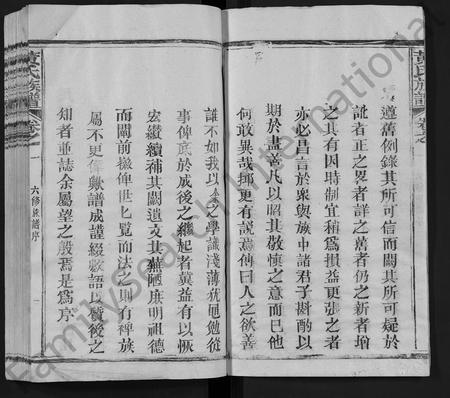 黃氏族譜
卷之
遵舊例錄其所可信而闕其所可疑於
訛者正之畧者詳之舊者仍之新者增
之其有因時制宜稍為損益更張之者
亦必昌言於衆與族中諸君子斟酌以
期於盡善凡以昭其敬慎之意而已他
何敢異哉抑更有説焉傳曰人之欲善
誰不如我以余之學識淺薄猶黽勉從
事俾底於成後之繼起者冀益有以恢
宏繼續補其闕遺文其蕪陋庶明祖德
而闡前徽俾世匕覽而法之則有裨族
屬不更偉歟譜成謹綴數語以質後之
知者並誌余屬望之殷焉是為序
六修族譜序
黃氏族譜
卷之
FamilySearch International